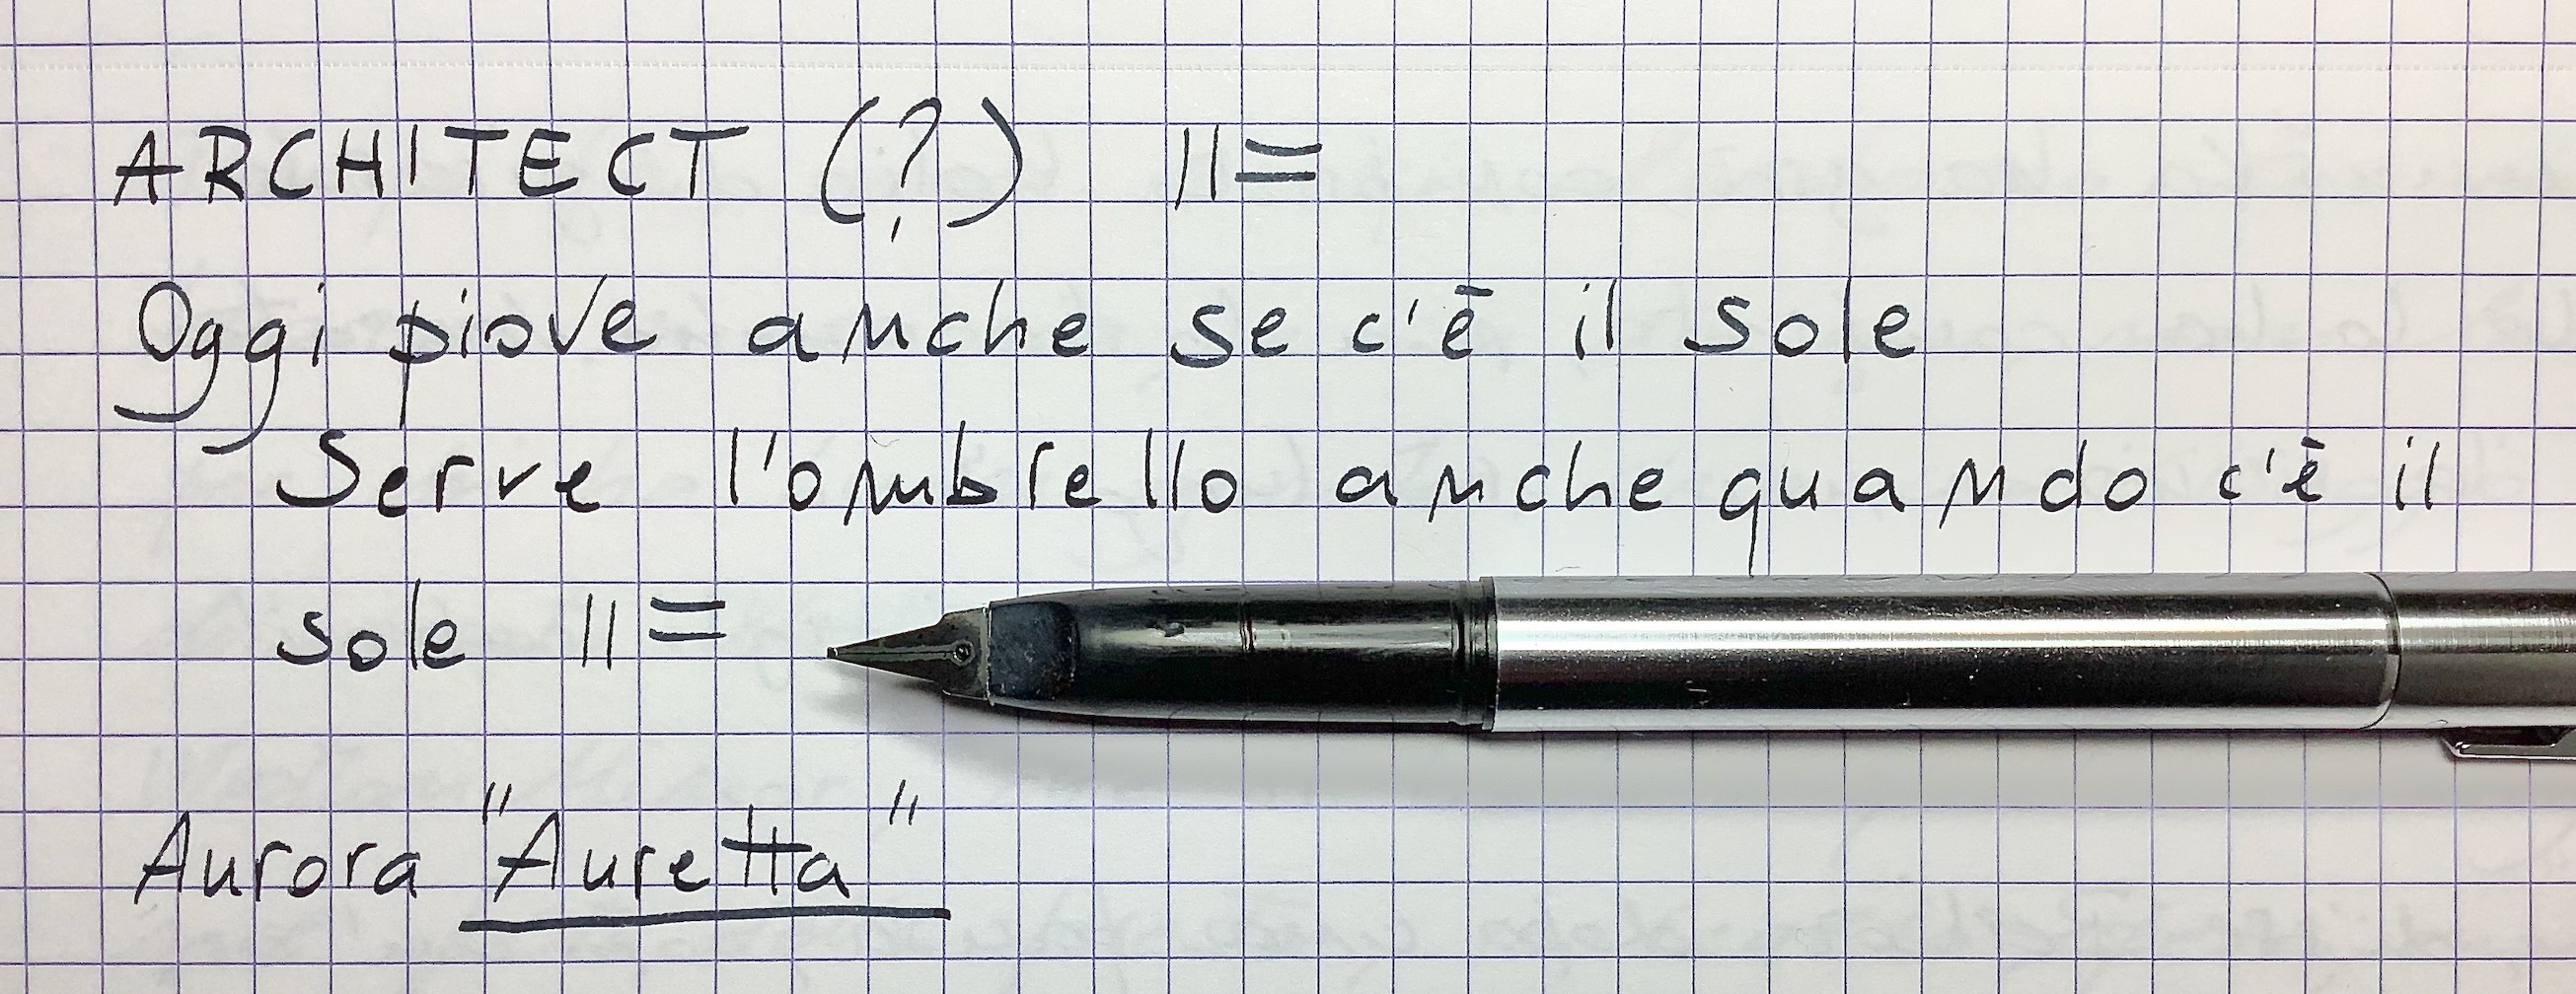 ARCHITECT (?) ||=
Oggi piove anche se c'è il sole
Serve l'ombrello anche quando c'è il
sole ||=
Aurora "Auretta"